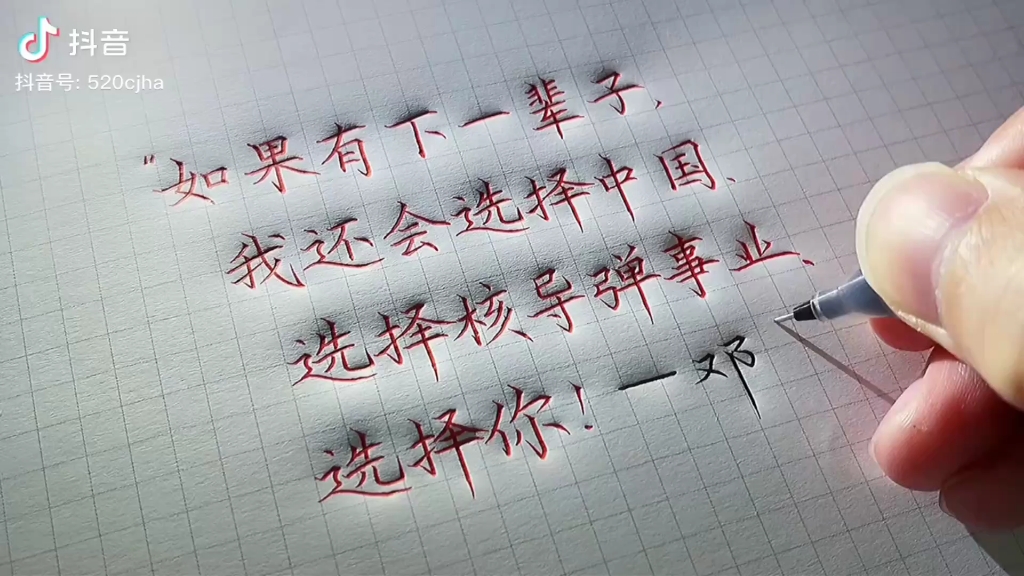 抖音
抖音号: 520cjha
"如果有下一辈子、
我还会选择中国、
选择核导弹事业、
选择你！一邓